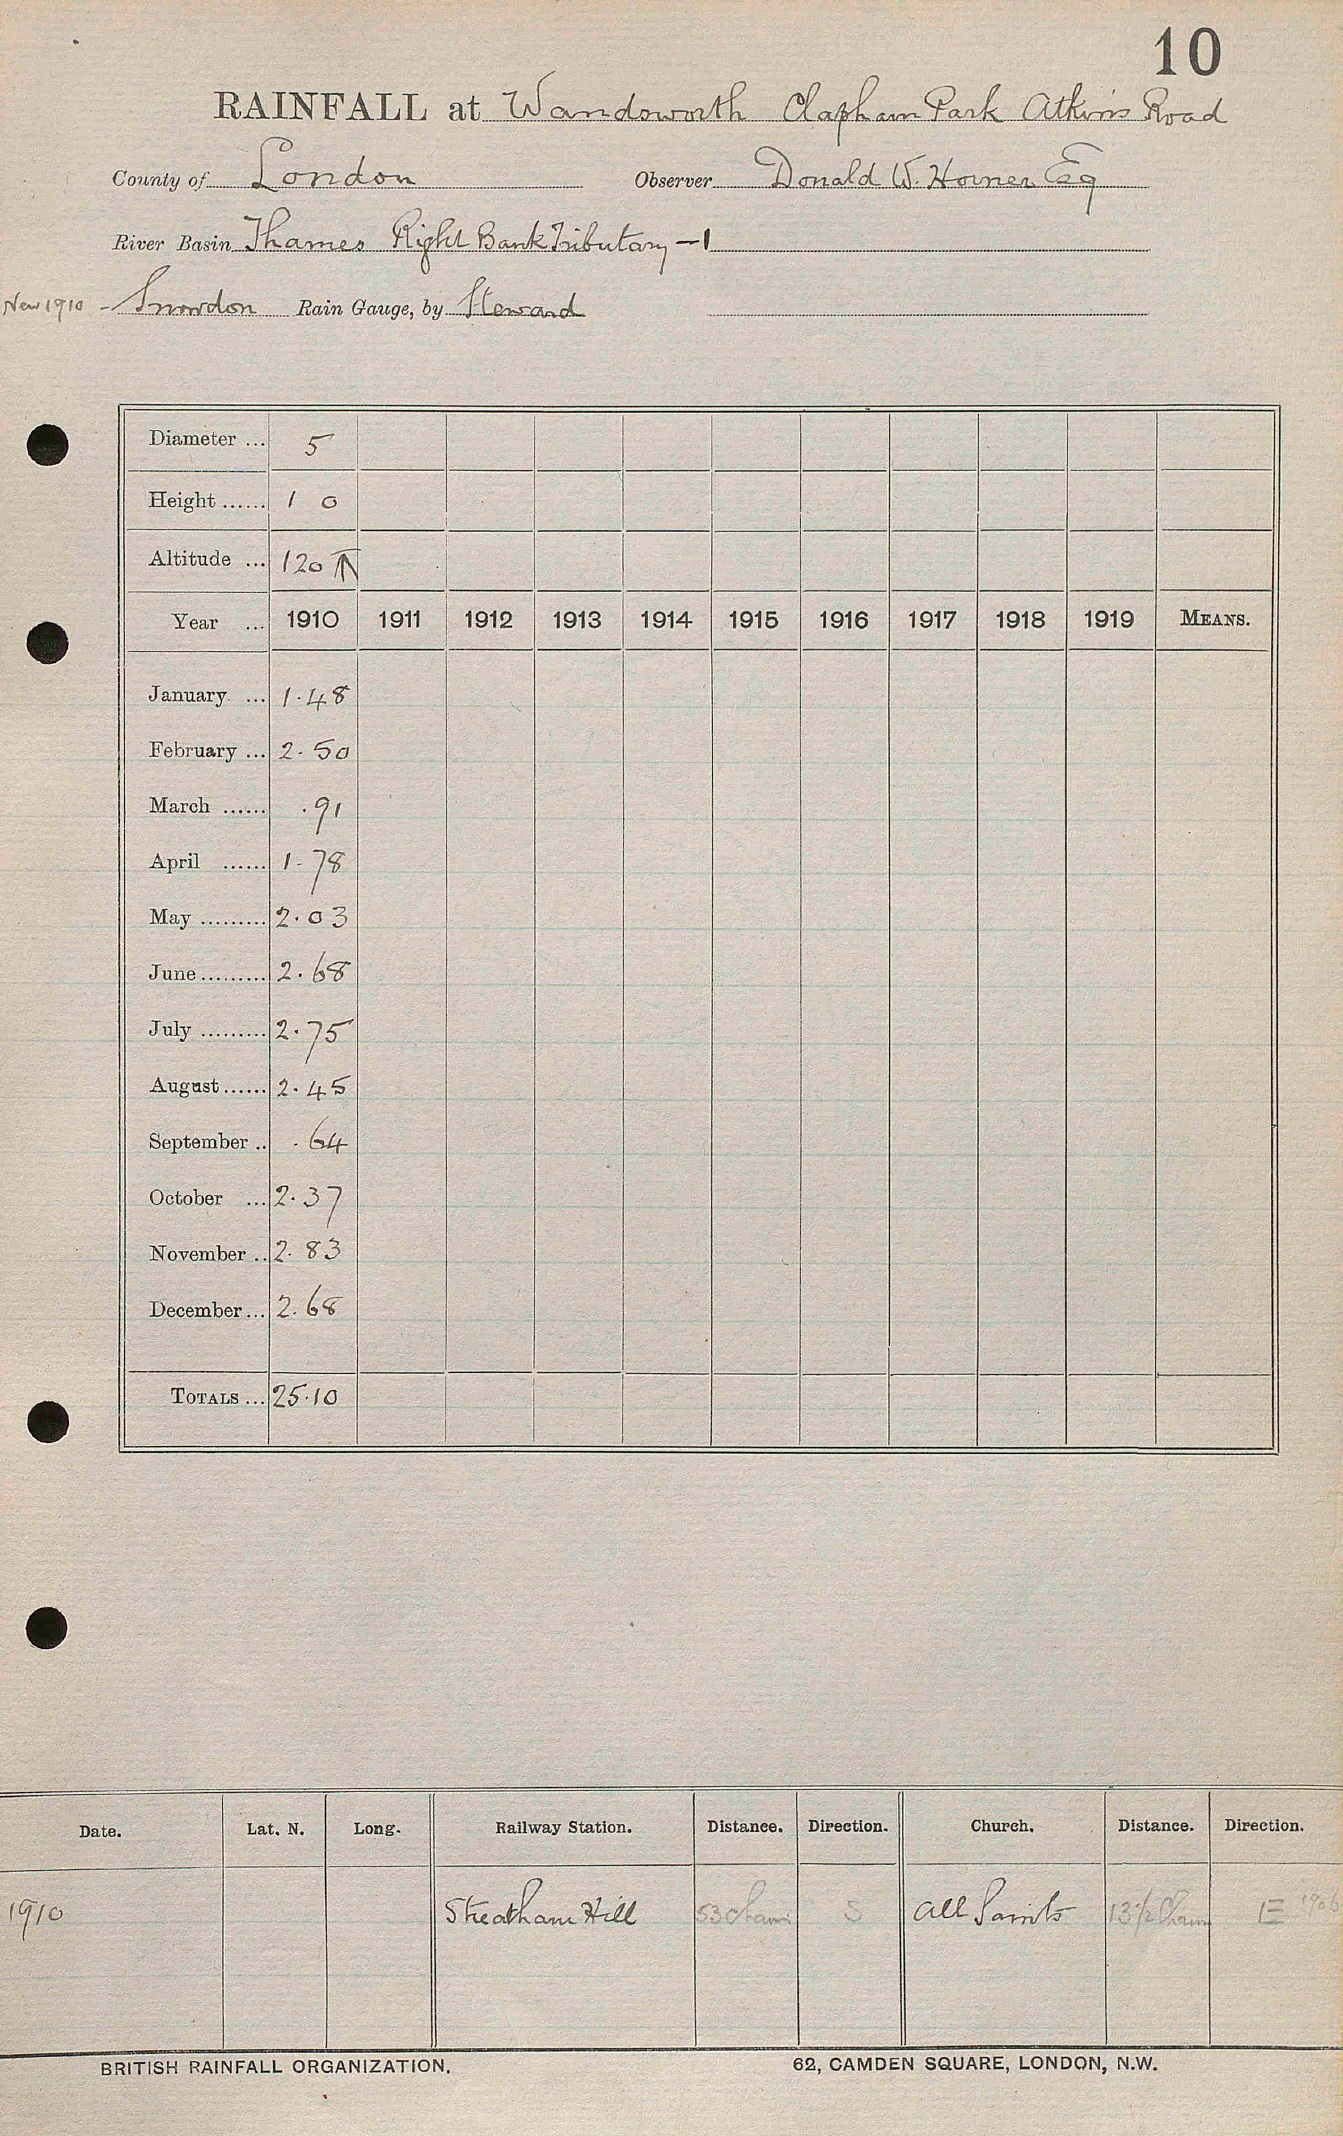 10
RAINFALL at Wandsworth Clapham Park Atkins Road
County of London Observer Donald W. Horner Esq
River Basin Thames Right Bank Tributary - 1
New 1910 - Snowdon Rain Gauge, by Steward
Diameter ... 5
Height ...... 1 0
Altitude ... 120
Year ... 1910 1911 1912 1913 1914 1915 1916 1917 1918 1919 MEANS.
January ... 1.48
February ... 2.50
March ...... .91
April ...... 1.78
May ......... 2.03
June ......... 2.68
July ......... 2.75
August ...... 2.45
September .. .64
October ... 2.37
November .. 2.83
December ... 2.68
TOTALS ... 25.10
Date. Lat. N. Long. Railway Station. Distance. Direction. Church. Distance. Direction.
1910 Streatham Hill 53 Chains S All Saints 13 1/2 Chains E
BRITISH RAINFALL ORGANIZATION. 62, CAMDEN SQUARE, LONDON, N.W.